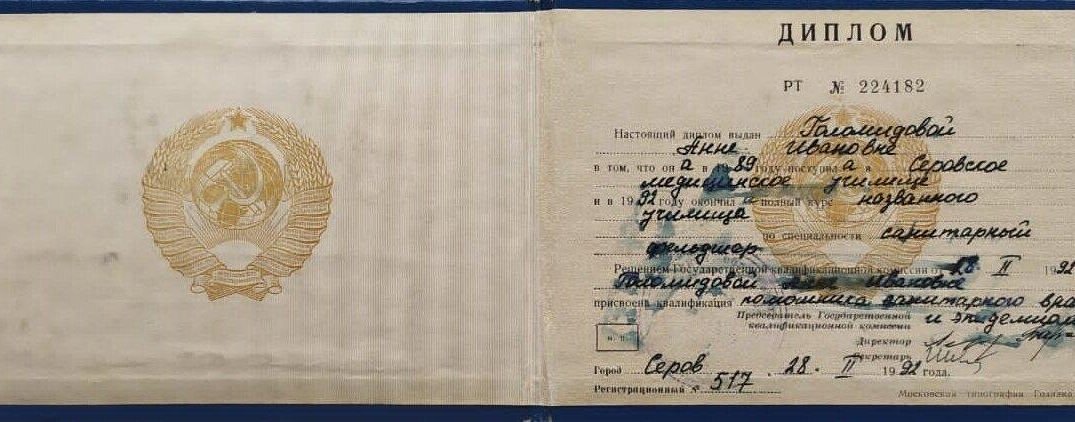 ДИПЛОМ
РТ № 224182
Настоящий диплом выдан Голомидовой
Анне Ивановне
в том, что он а в 1989 году поступил а в Серовское
медицинское училище
и в 1992 году окончил а полный курс названного
училища
по специальности санитарный
фельдшер
Решением Государственной квалификационной комиссии от 28 II 1992
Голомидовой Анне Ивановне
присвоена квалификация помощника санитарного вра
Председатель Государственной и эпидемиол
квалификационной комиссии
Директор
Секретарь
Город Серов 28. II 1992 года.
Регистрационный № 517
Московская типография Гознака